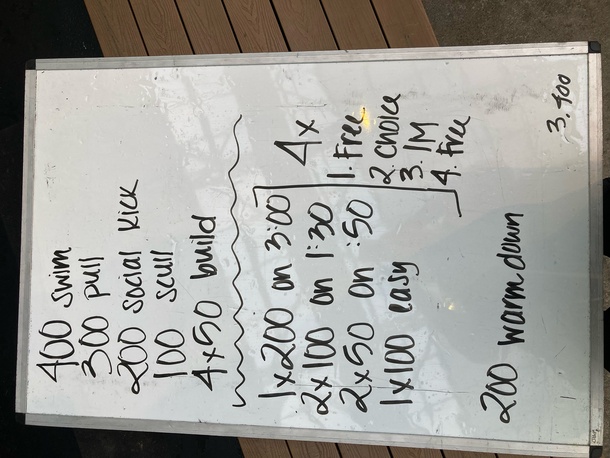 400 swim
300 pull
200 social kick
100 scull
4x50 build
1x200 on 3:00
2x100 on 1:30
2x50 on :50
1x100 easy
4x
1. Free
2. Choice
3. IM
4. Free
200 warm down
3,400